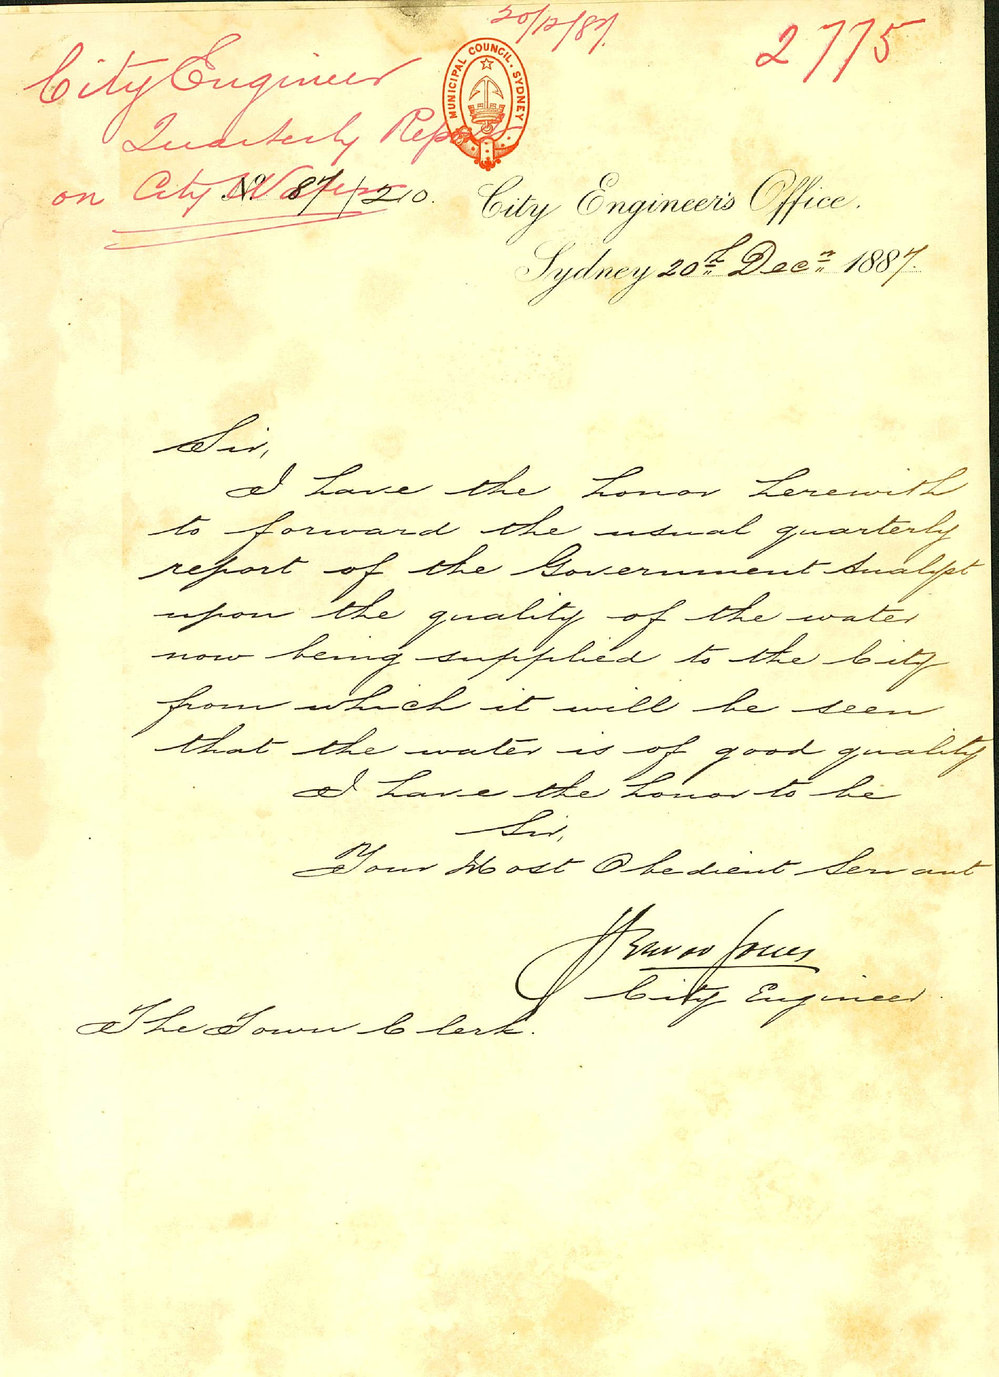 20/12/87.
2775
City Engineer
Quarterly Report
on City Water
MUNICIPAL COUNCIL. SYDNEY
No. 87/210.
City Engineer's Office.
Sydney 20th Decr 1887.
Sir,
I have the honor herewith
to forward the usual quarterly
report of the Government Analyst
upon the quality of the water
now being supplied to the City
from which it will be seen
that the water is of good quality
I have the honor to be
Sir,
Your Most Obedient Servant
Jones
City Engineer.
The Town Clerk.